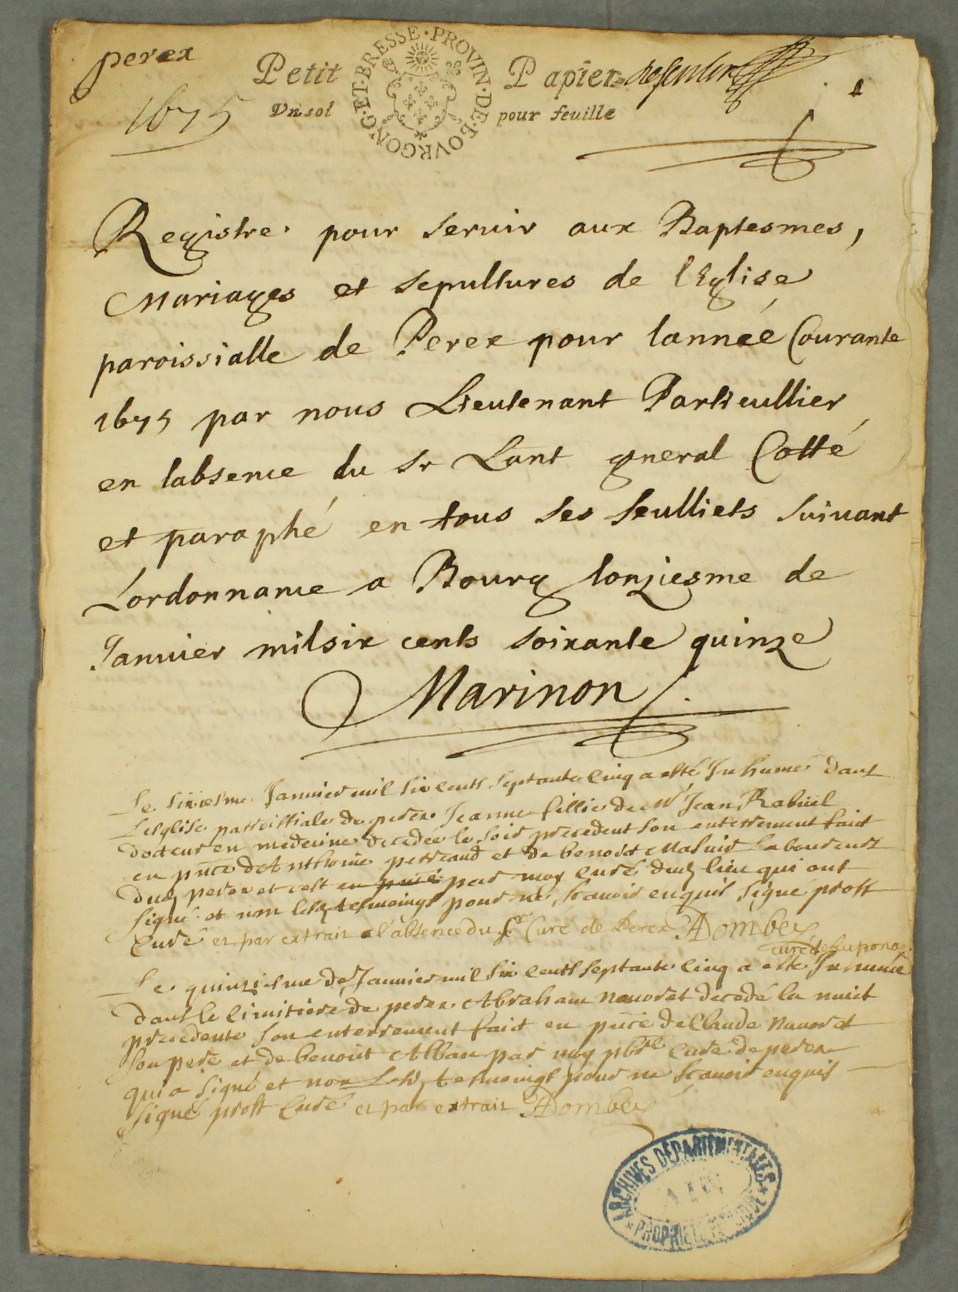 perex
1675
Petit Papier
Vn sol pour feuille
PROVIN·DE·BOVRGONG·ET·BRESSE·
1
Registre pour seruir aux Baptesmes,
Mariages et sepultures de lEglise
paroissialle de Perex pour lannée Courante
1675 par nous Lieutenant Particullier
en labsence du Sr Lant general Cotté
et paraphé en tous ses feulliets suiuant
Lordonnance a Bourg lonziesme de
Januier mil six cents soixante quinze
Marinon
Le sixiesme Januier mil six cents septante cinq a esté Inhumé dans
Leglise parroissiale de perex Jeanne fillie de Mr Jean Rabuel
docteur en medecine decedée le soir precedent son enterrement fait
en pnce dAnthoine perraud et de benoist laboureurs
dud perex et cest par moy curé dud lieu qui ont
signé et non lesd tesmoings pour ne scauoir enquis signe prost
Curé et par extrait a l'absence du Sr Curé de Perex Dombey
curé de
Le quinziesme de Januier mil six cents septante cinq a esté Inhumé
dans le cimitiere de perex Abraham nauoret decedé la nuict
precedente son enterrement fait en pnce de Claude nauoret
son pere et de benoist Alban par moy pbre Curé de perex
qui a signé et non Lesd tesmoings pour ne scauoir enquis
signé prost Curé et par extrait Dombey
ARCHIVES DÉPARTEMENTALES
AIN
PROPRIÉTÉ PUBLIQUE